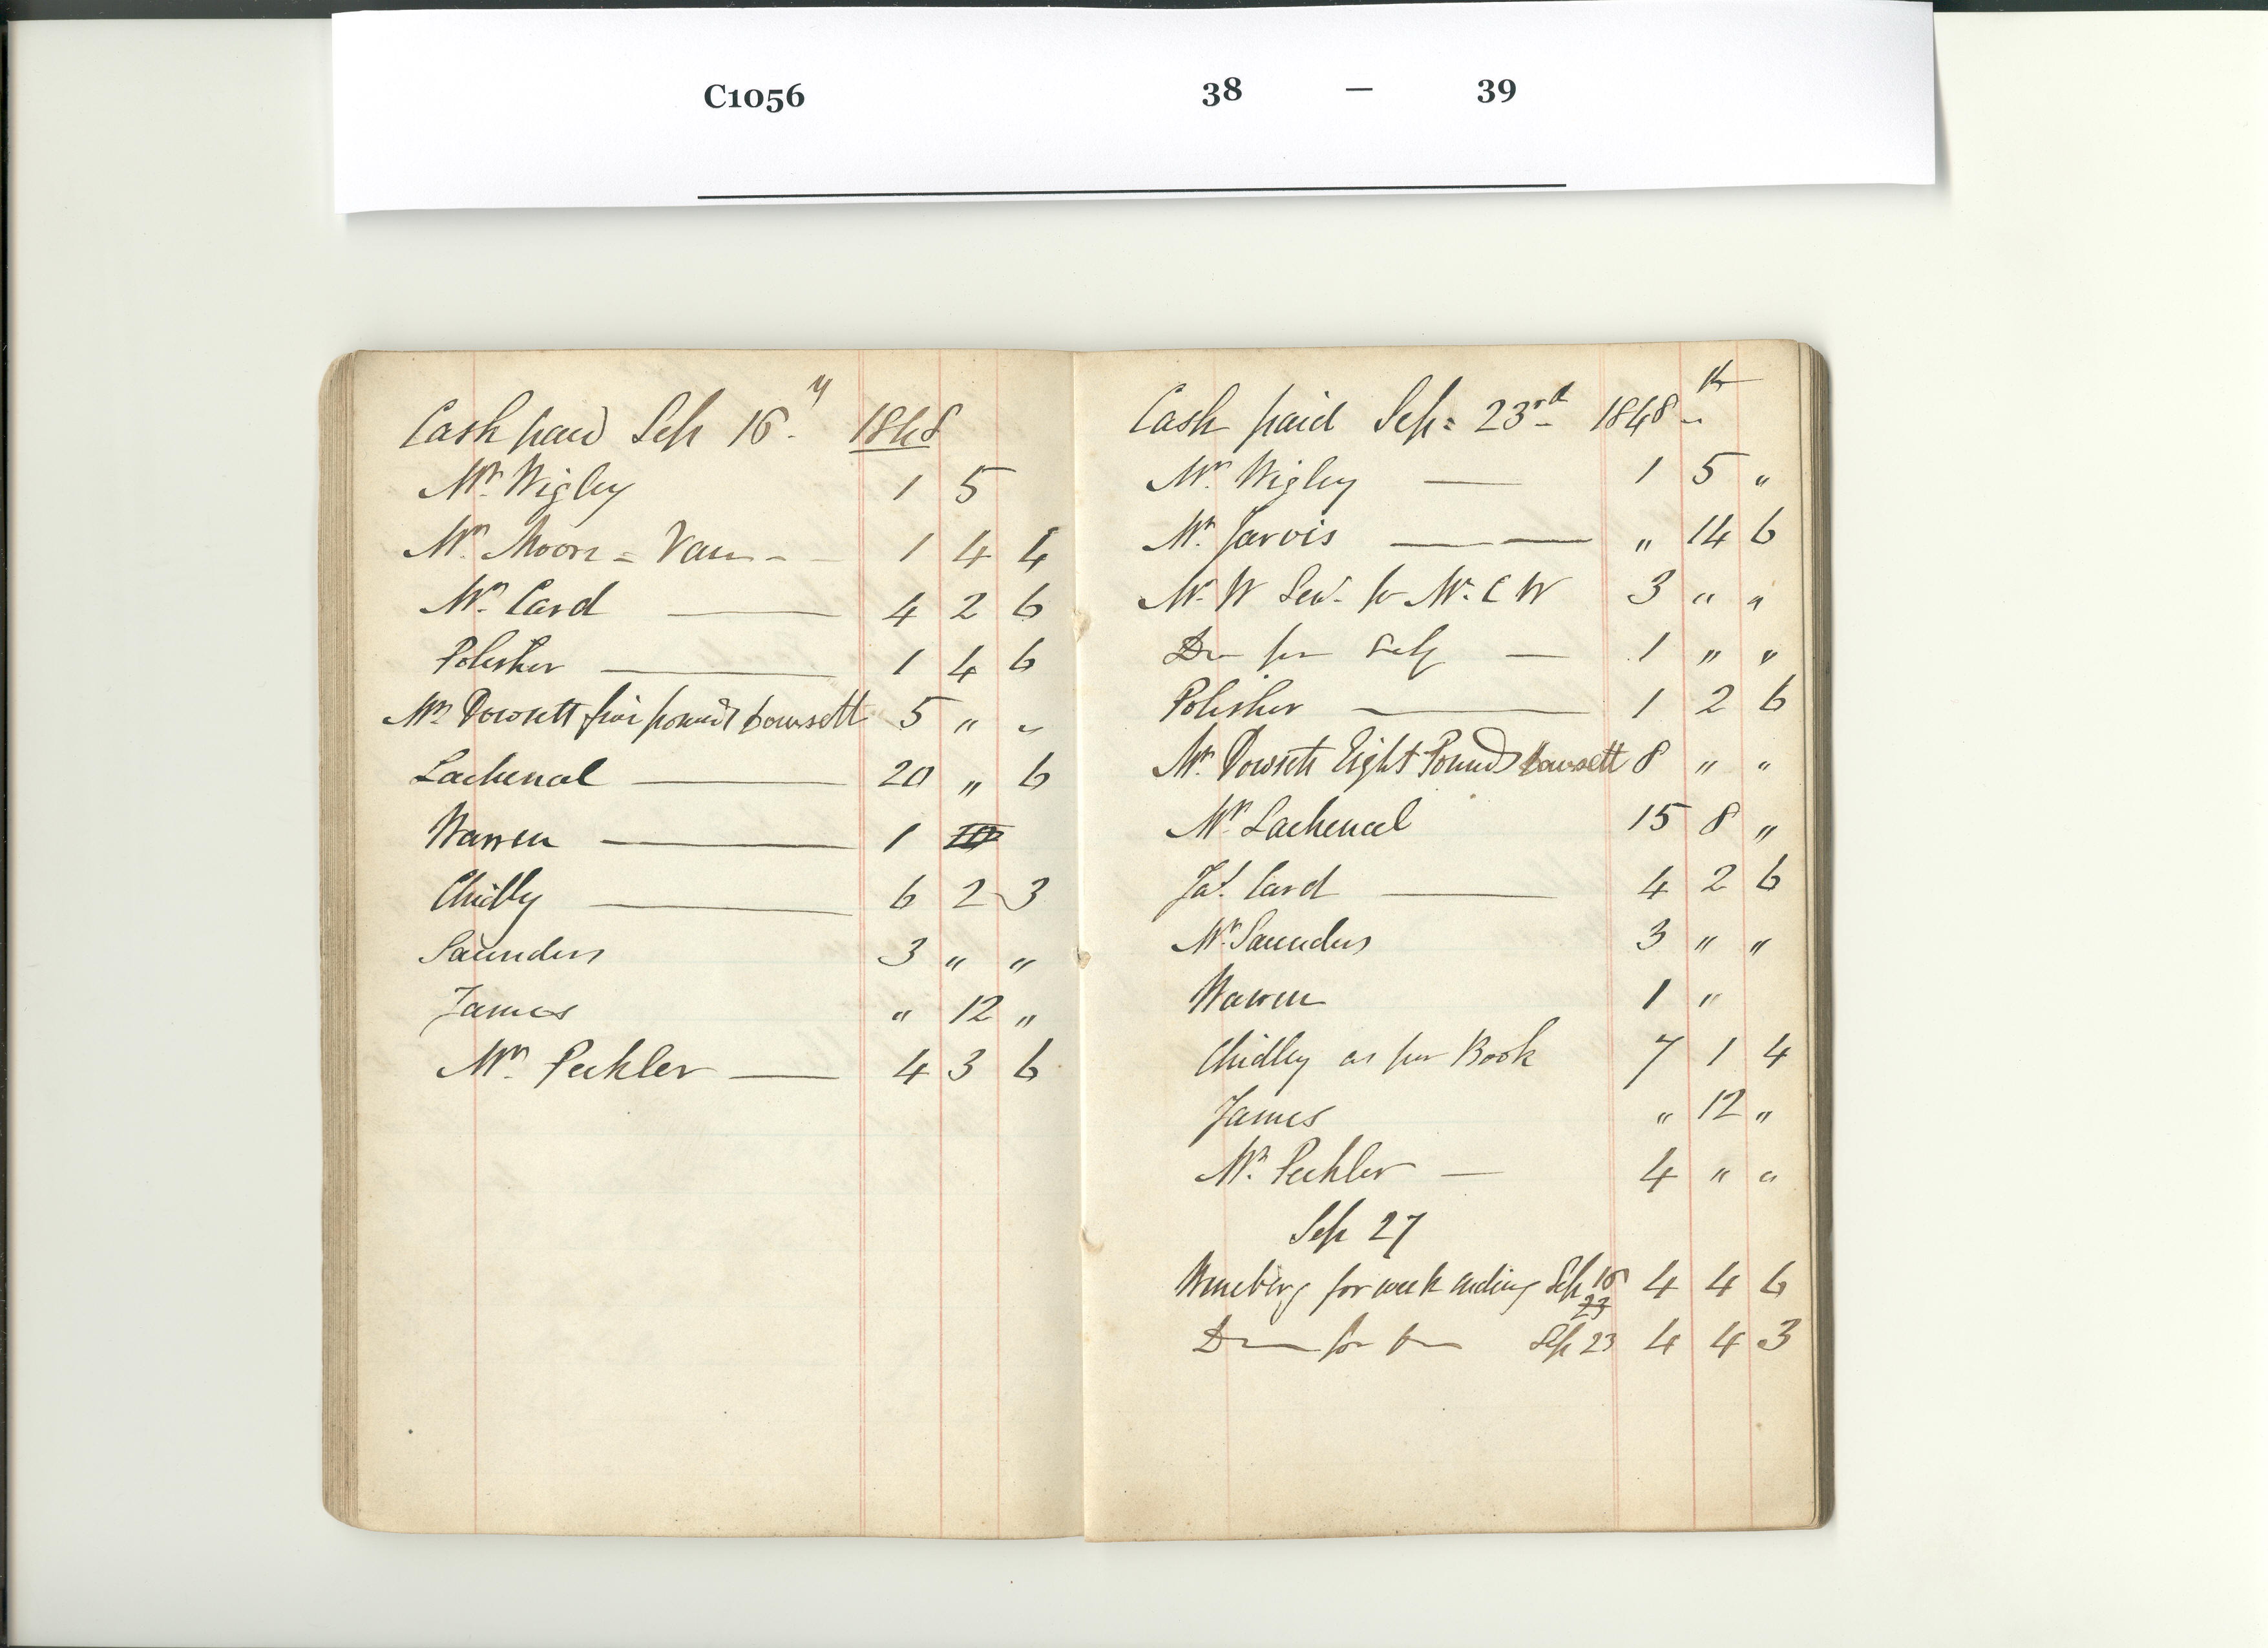 C1056 38 — 39
Cash paid Sep 16. 1848
Mr. Wigley 1 5
Mr. Moore = 1 4 4
Mr. Card — 4 2 6
Polisher — 1 4 6
Mr Dowsett five pounds Dowsett 5 " "
Lachenal — 20 " 6
Warren — 1
Chidly — 6 2 3
Saunders 3 " "
James " 12 "
Mr. Peckler — 4 3 6
Cash paid Sep = 23rd 1848 -
Mr. Wigley — 1 5 "
Mr. Jarvis — — " 14 6
Mr. W Senr. for Mr. C W 3 " "
Do for Self — 1 " "
Polisher — 1 2 6
Mr. Dowsett Eight Pounds Dowsett 8 " "
Mr. Lachenal 15 8 "
Jas. Card — 4 2 6
Mr. Saunders 3 " "
Warren 1 "
Chidley as per Book 7 1 4
James " 12 "
Mr. Peckler — 4 " "
Sep 27
for week ending Sep 16 4 4 6
23
Do for Do Sep 23 4 4 3